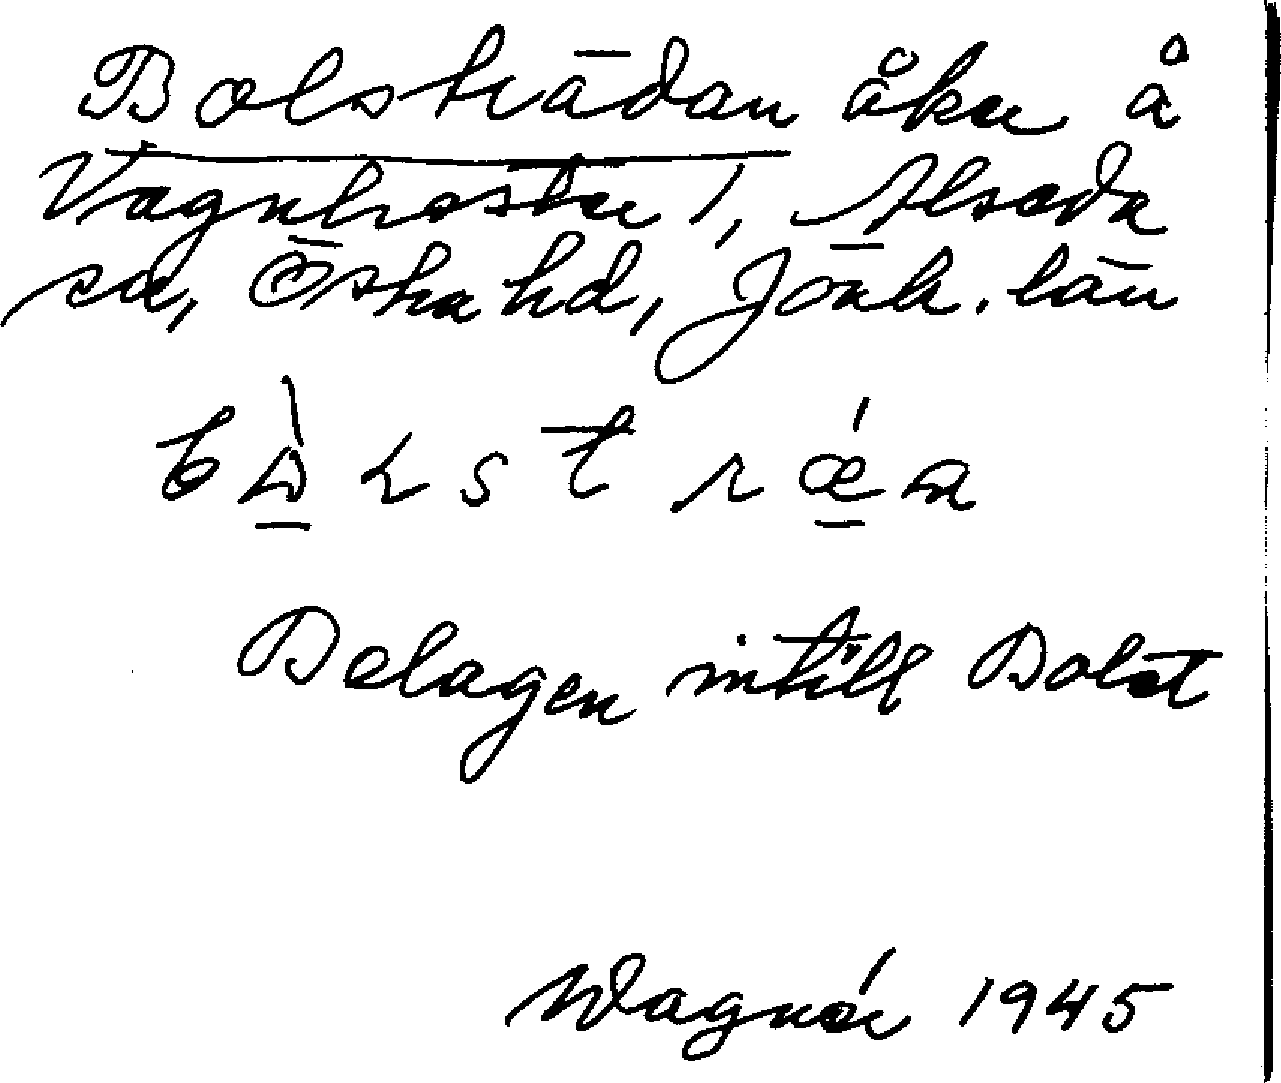 Bolsträdan åker å
Vagnhester 1, Alseda
sn, Östra hd, Jönk. län
Belagen intill Bolst
Wagnér 1945